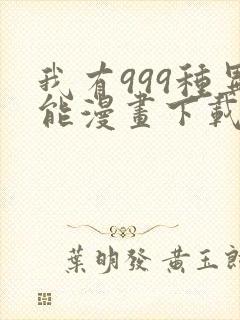 我有999種異
能漫畫下載
葉明發 黃玉郎